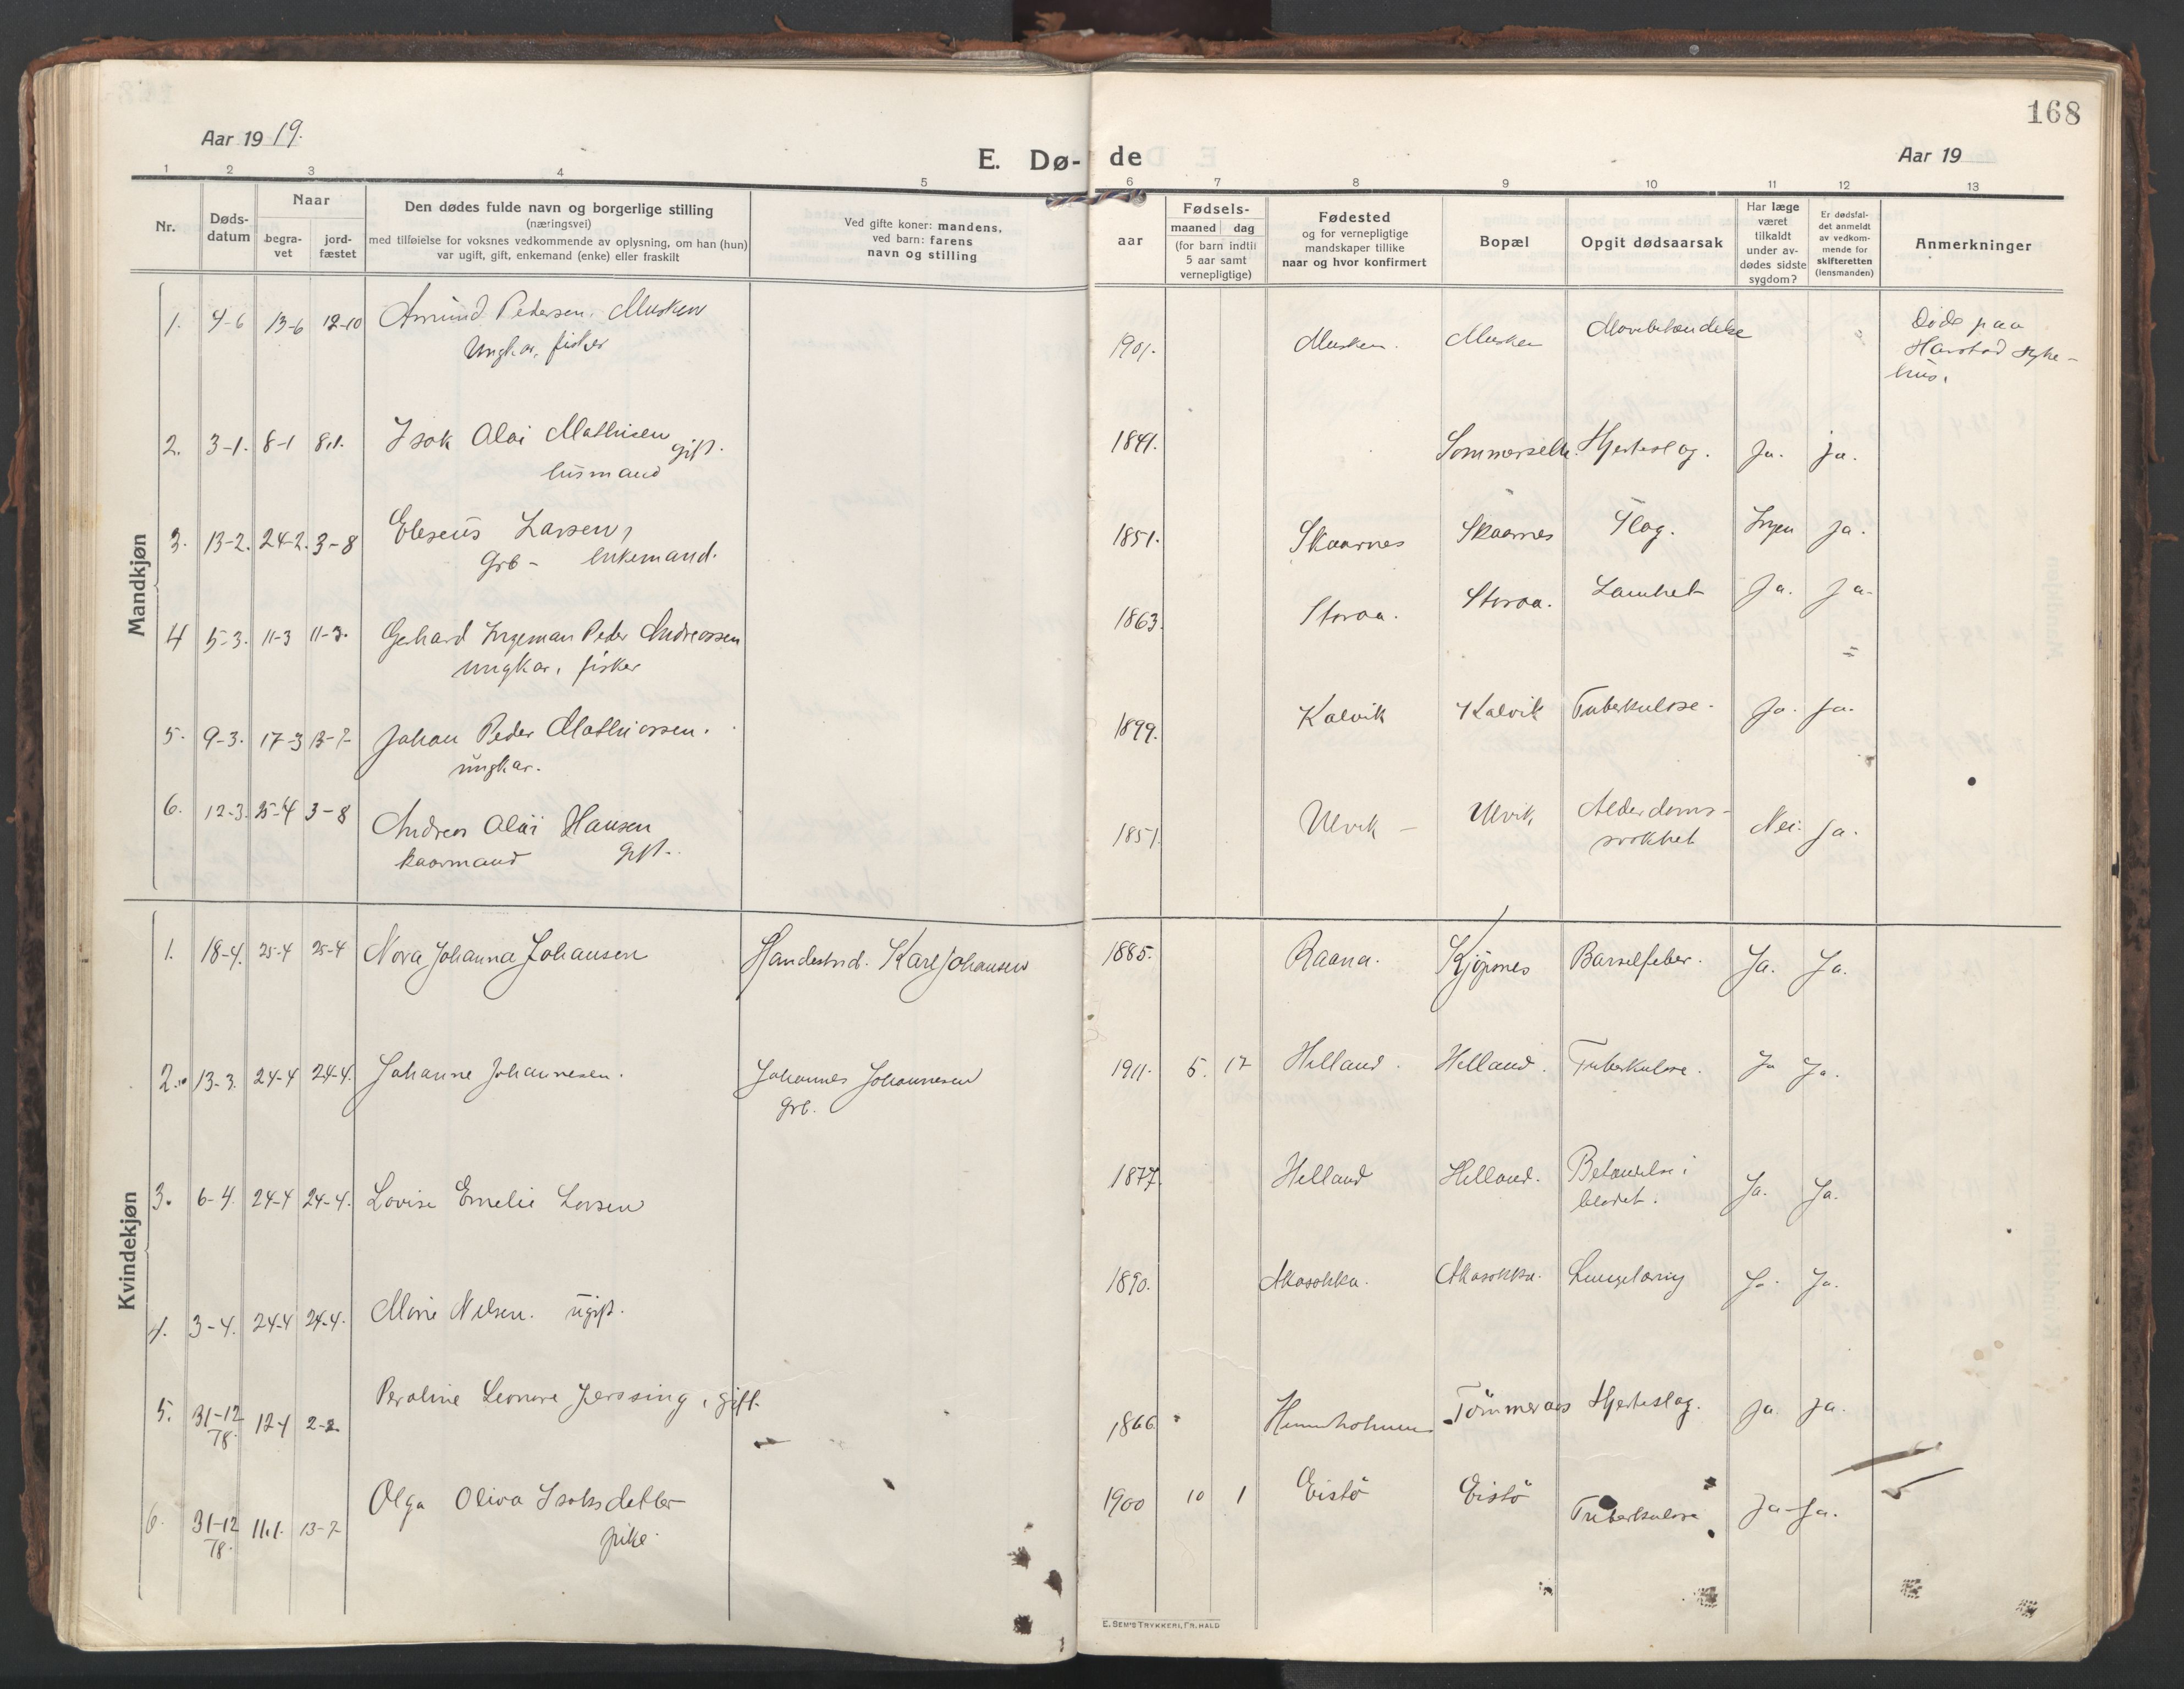 168
Aar 1919.
E. Dø-
de
Aar 19
1 2 3 4 5
6 7 8 9 10 11 12 13
Nr.
Døds-
datum
Naar
begra-
vet
jord-
fæstet
Den dødes fulde navn og borgerlige stilling
(næringsvei)
med tilføielse for voksnes vedkommende av oplysning, om han (hun)
var ugift, gift, enkemand (enke) eller fraskilt
Ved gifte koner: mandens,
ved barn: farens
navn og stilling
aar
Fødsels-
maaned dag
(for barn indtil
5 aar samt
vernepligtige)
Fødested
og for vernepligtige
mandskaper tillike
naar og hvor konfirmert
Bopæl
Opgit dødsaarsak
Har læge
været
tilkaldt
under av-
dødes sidste
sygdom?
Er dødsfal-
det anmeldt
av vedkom-
mende for
skifteretten
(lensmanden)
Anmerkninger
Mandkjøn
1. 4-6 13-6 12-10 Amund Pedersen, Musken
Ungkar, fisker
1901. Musken. Musken Mavebetændelse
Døde paa
Harstad syke-
hus.
2. 3-1. 8-1 8.1. Isak Olai Mathisen
gift.
husmand
1841. Hjerteslag. Ja. ja.
3. 13-2. 24-2. 3-8 Eliseus Larsen,
Grb- Enkemand.
1851. Skaarnes Skaarnes Slag. Ingen ja.
4 5-3. 11-3 11-3. Gerhard Ingeman Peder Andreassen
ungkar, fisker
1863. Storaa. Storaa. Lamhet Ja. Ja-
5. 9-3. 17-3 Johan Peder Mathiassen.
ungkar.
1899. Kalvik Kalvik Tuberkulose. Ja. Ja.
6. 12-3. 25-4 3-8 Andreas Olai Hansen
kaarmand gift.
1851. Ulvik - Ulvik Alderdoms-
svakhet Nei. Ja.
Kvindekjøn
1. 18-4. 25-4 25-4 Nora Johanna Johansen Handelsmd. Karl Johansen
1885. Raana. Kjöpsnes Barselfeber. Ja. Ja.
2. 13-3. 24-4 24-4. Johanne Johannesen. Johannes Johannesen
grb.
1911. 5. 17 Helland. Helland. Tuberkulose. Ja Ja.
3. 6-4. 24-4 24-4. Lovise Emelie Larsen
1877. Helland Helland. Betændelse i
blodet. Ja. Ja.
4. 3-4. 24-4 24-4. Marie Nilsen. ugift.
1890. Ja. Ja.
5. 31-12
18. 12-1 2-2 Peroline Leonore Jerssing, gift.
1866. Tömmeraas Hjerteslag. ja. ja.
6. 31-12
18. 11.1. 13-7 Olga Oliva Isaksdatter
pike.
1900 10 1 Eistö Eistö Tuberkulose Ja- Ja.
E. SEM'S TRYKKERI, FR.HALD